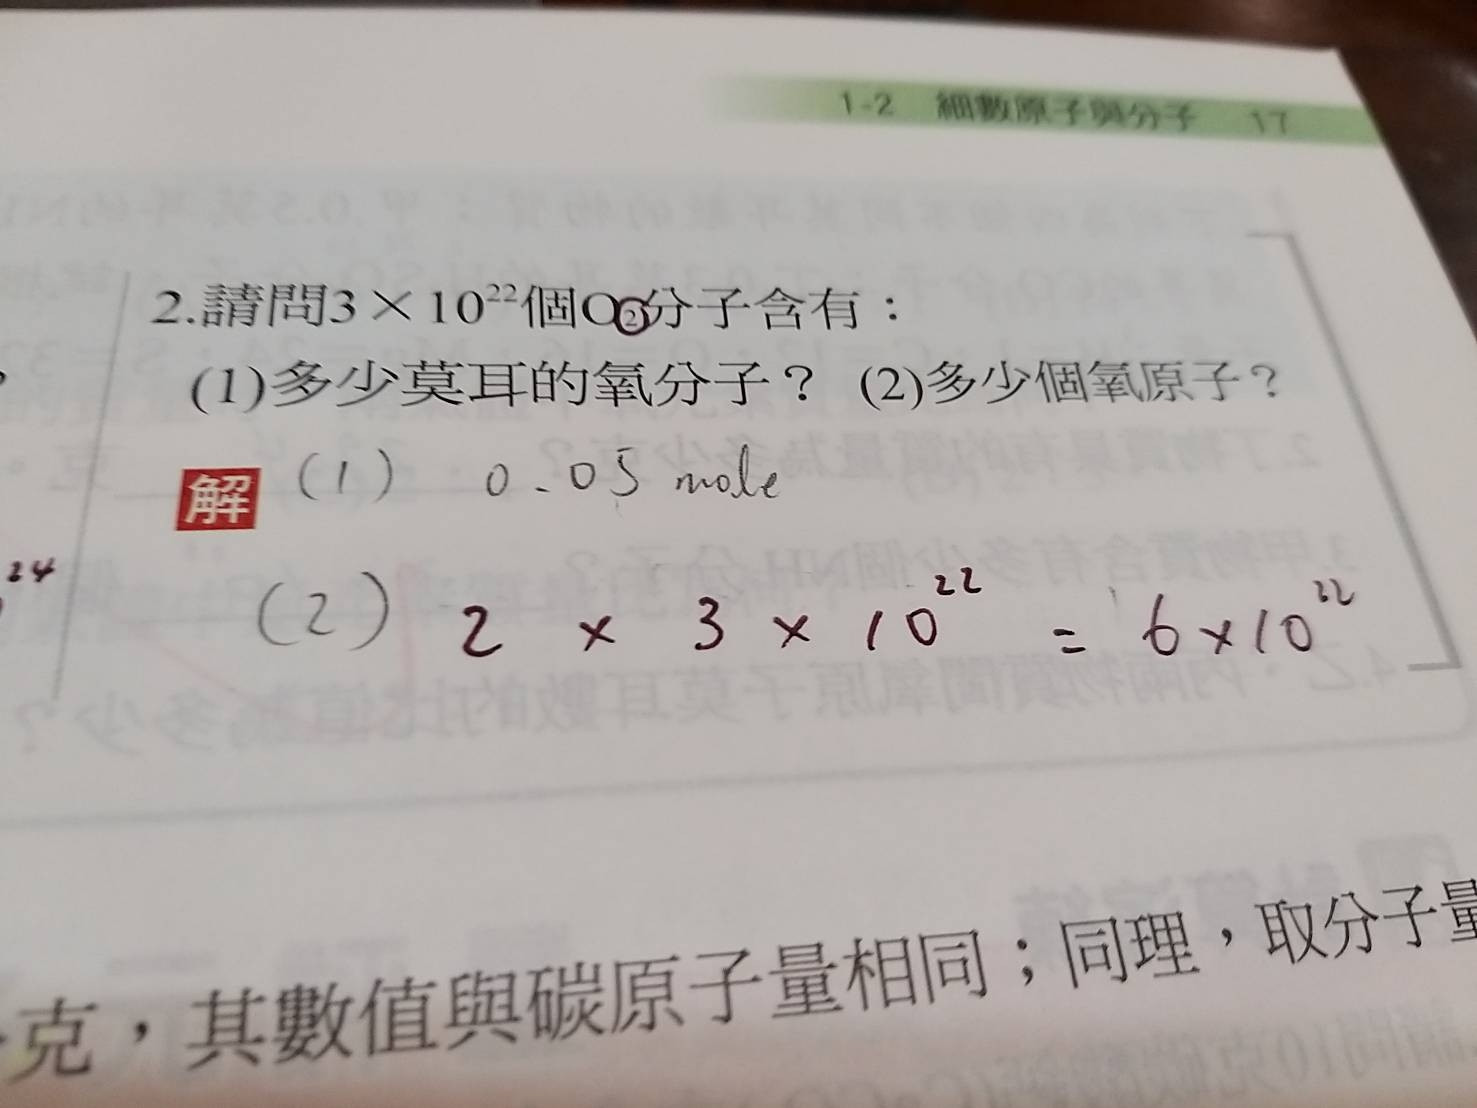 1-2 細數原子與分子 17
2.請問3×10²²個O₂分子含有：
(1)多少莫耳的氧分子？ (2)多少個氧原子？
解 (1) 0.05 mole
24
(2) 2 × 3 × 10²² = 6×10²²
克，其數值與碳原子量相同；同理，取分子量